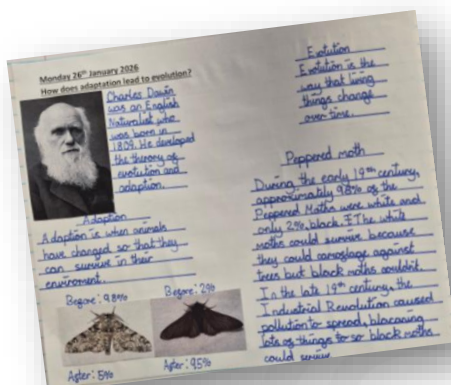 Monday 26th January 2026
How does adaptation lead to evolution?
Charles Dawin
was an English
Naturalist who
was born in
1809. He developed
the theory of
evolution and
adaption.
Adaption
Adaption is when animals
have changed so that they
can survive in their
enviroment.
Before: 98%
Before: 2%
After: 5%
After: 95%
Evolution
Evolution is the
way that living
things change
over time.
Peppered moth
During the early 19th century,
approximately 98% of the
Peppered Moths were white and
only 2% black. The white
moths could survive because
they could camoflage against
trees but black moths couldn't.
In the late 19th century, the
Industrial Revolution caused
pollution to spread, blacaning
lots of things to so black moths
could survive.